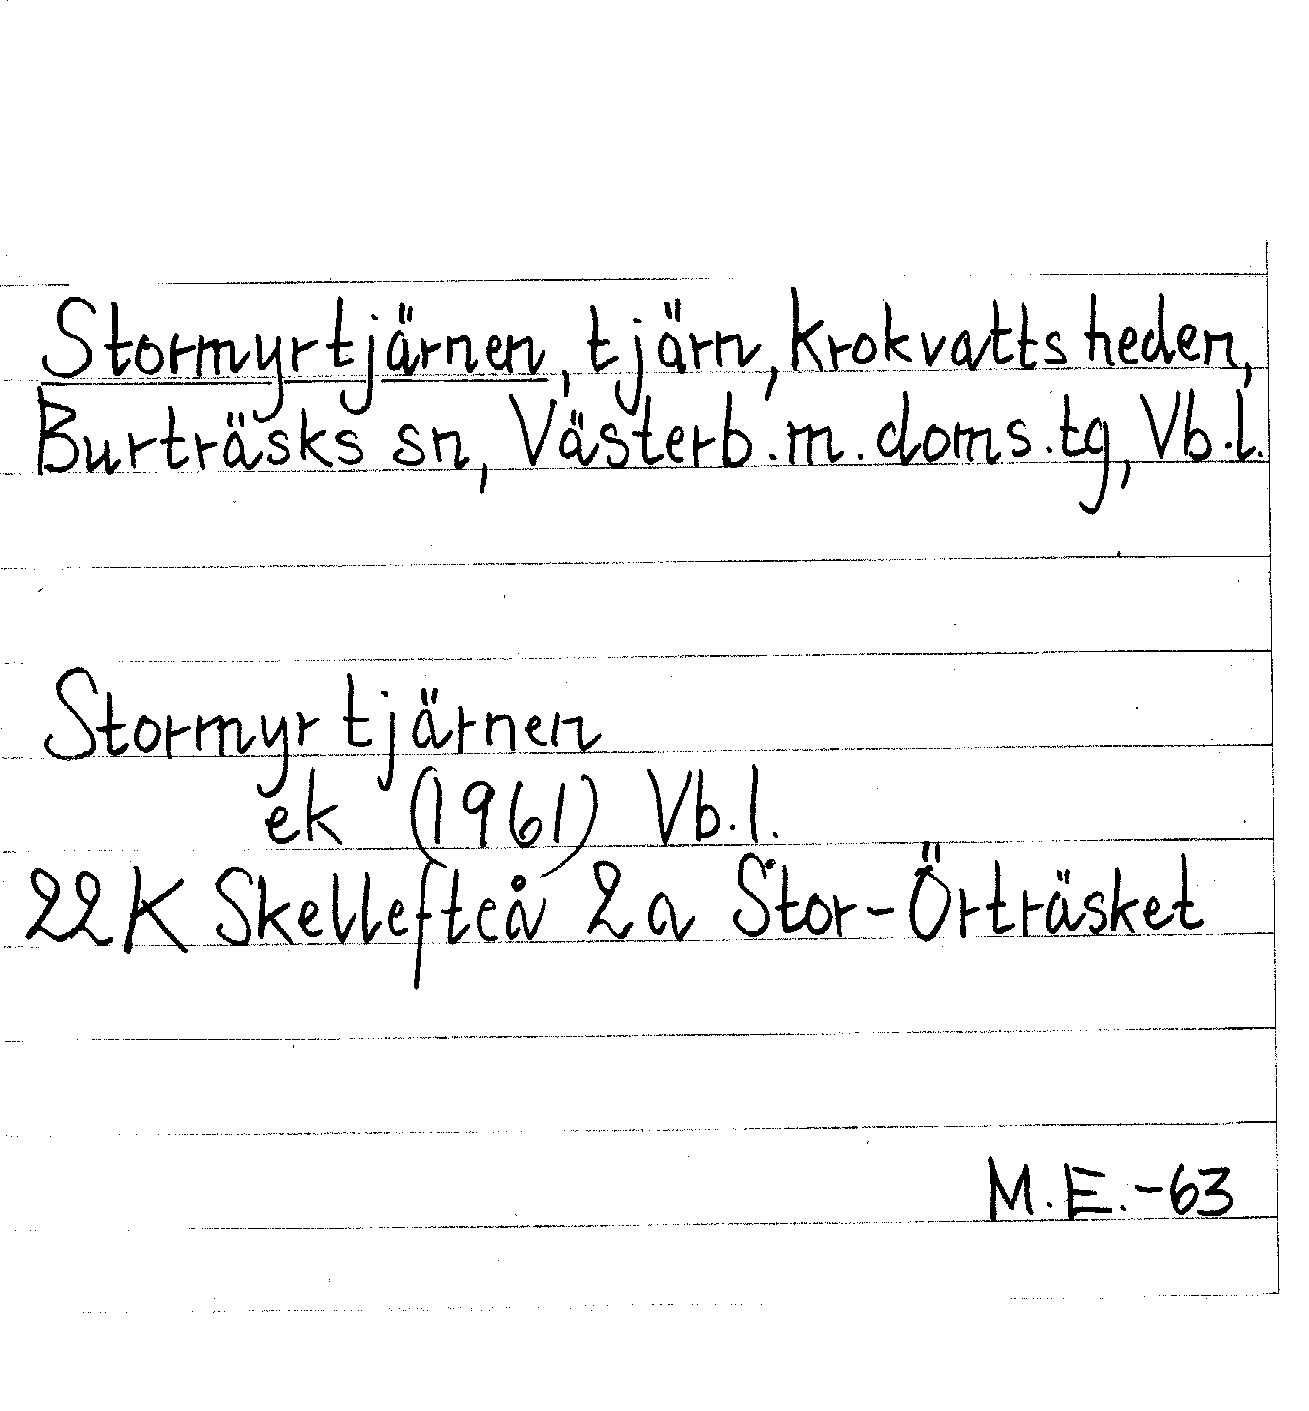 Stormyrtjärnen, tjärn, Krokvattsheden,
Burträsks sn, Västerb.m.doms.tg, Vb.l.
Stormyrtjärnen
ek (1961) Vb.l.
22K Skellefteå 2a Stor-Örträsket
M.E.-63